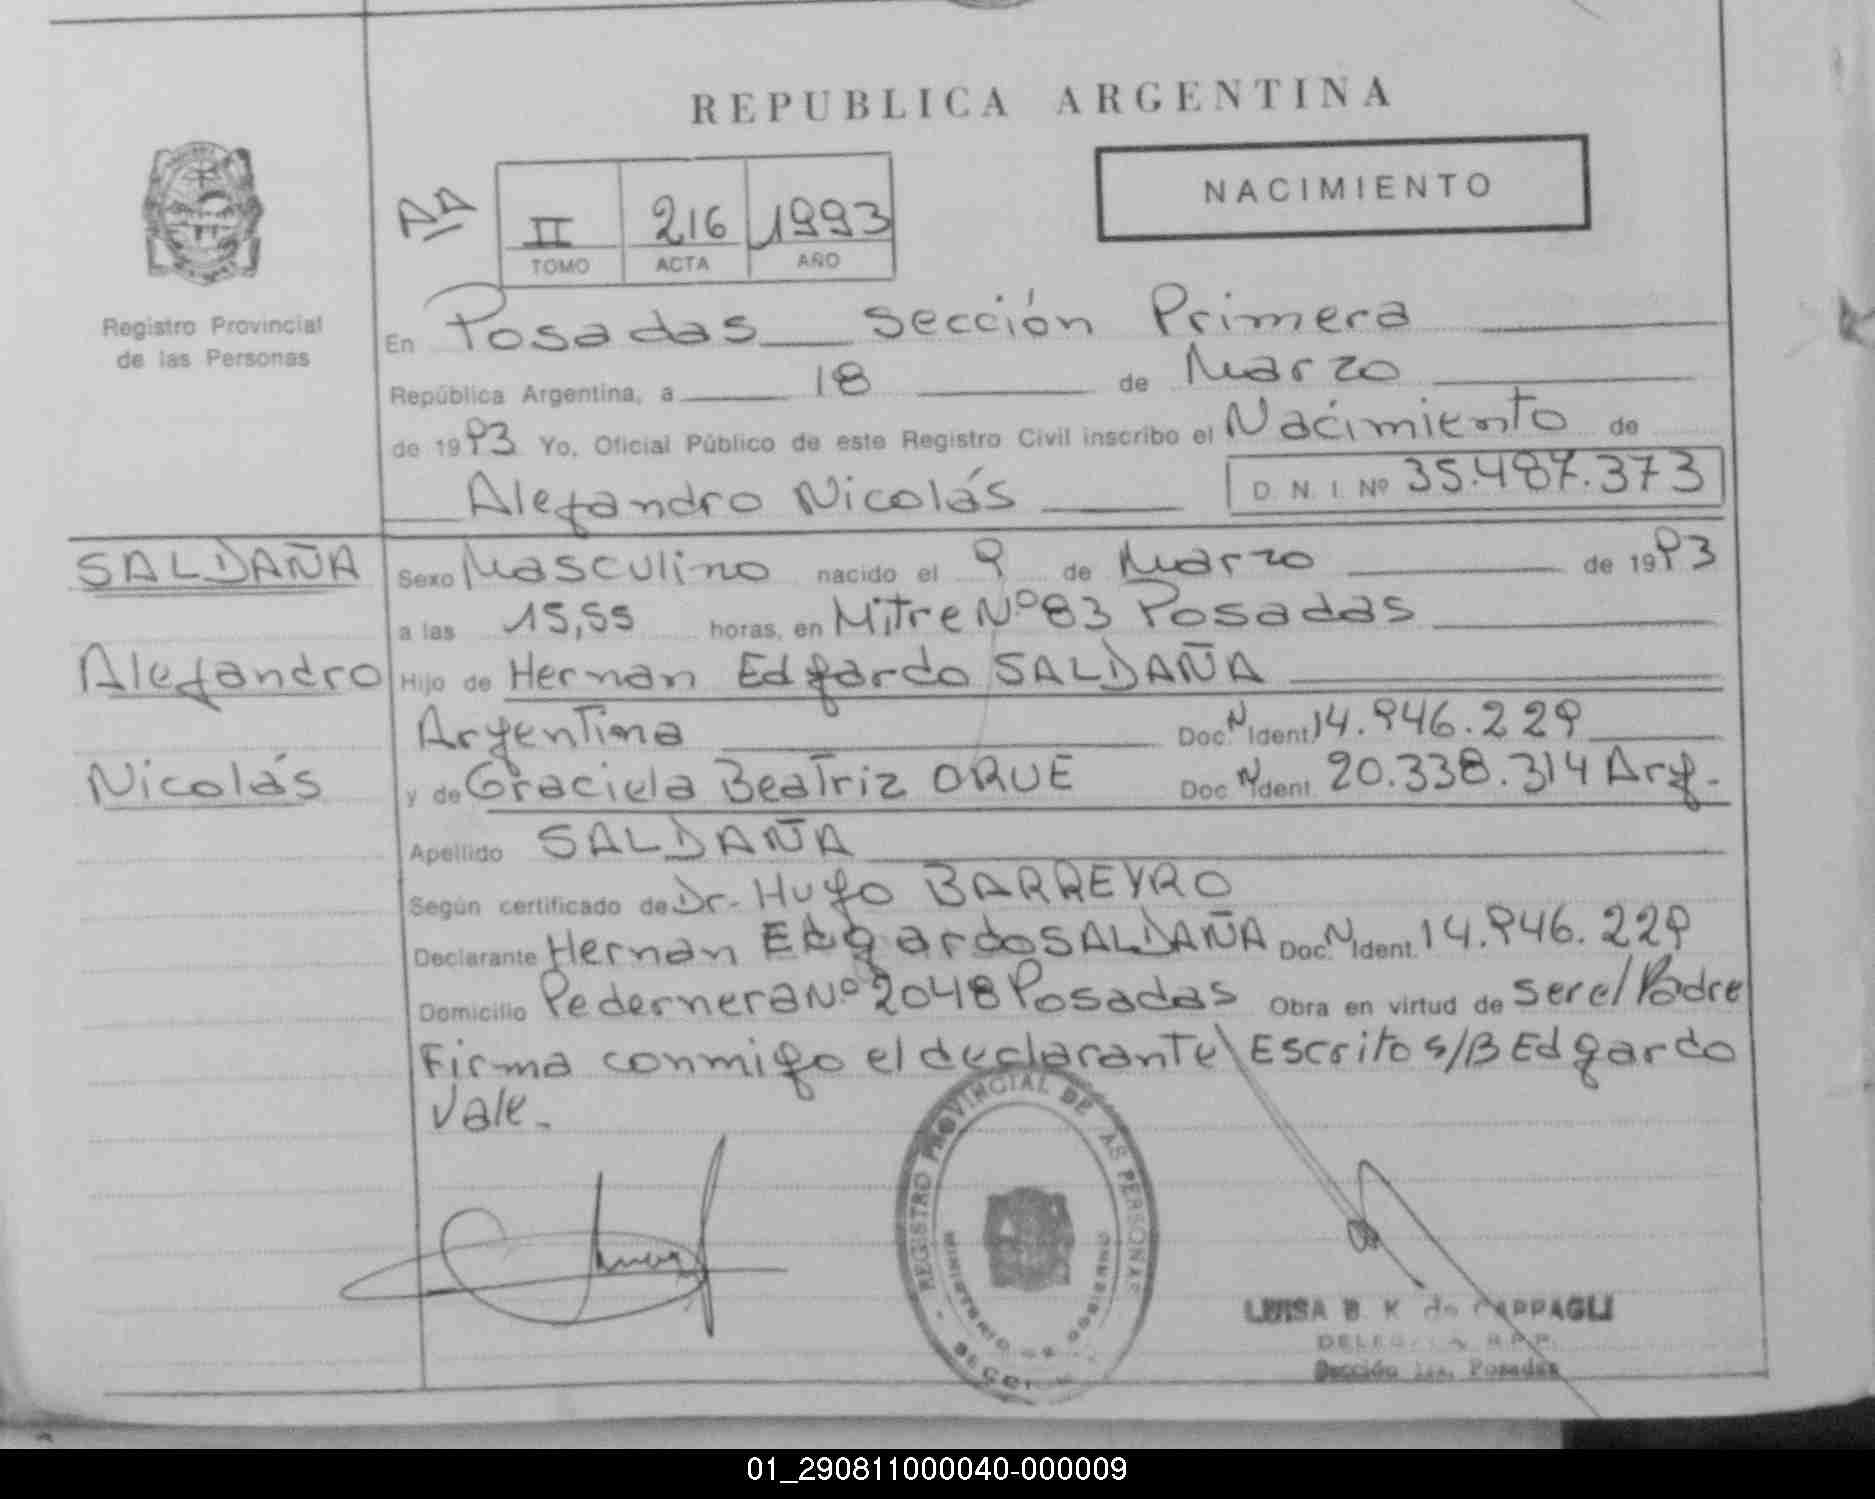 REPUBLICA ARGENTINA
NACIMIENTO
AA
II 216 1993
TOMO ACTA AÑO
Registro Provincial
de las Personas
En Posadas Sección Primera
República Argentina, a 18 de Marzo
de 1993 Yo, Oficial Público de este Registro Civil inscribo el Nacimiento de
Alejandro Nicolás D. N. I. Nº 35.487.373
SALDAÑA
Alejandro
Nicolás
Sexo Masculino nacido el 9 de Marzo de 1993
a las 15,55 horas, en Mitre Nº 83 Posadas
Hijo de Hernan Edgardo SALDAÑA
Argentina Doc. N. Ident. 14.946.229
y de Graciela Beatriz ORUE Doc. N. Ident. 20.338.314 Arg.
Apellido SALDAÑA
Según certificado de Dr. Hugo BARREYRO
Declarante Hernan Edgardo SALDAÑA Doc. N. Ident. 14.946.229
Domicilio Pedernera Nº 2048 Posadas Obra en virtud de ser el Padre
Firma conmigo el declarante\ Escrito s/B Edgardo
Vale.
REGISTRO PROVINCIAL DE LAS PERSONAS
MINISTERIO DE GOBIERNO
LUISA B. K. de CAPPAGLI
DELEGADA R.P.P.
Sección 1ra. Posadas
01_290811000040-000009